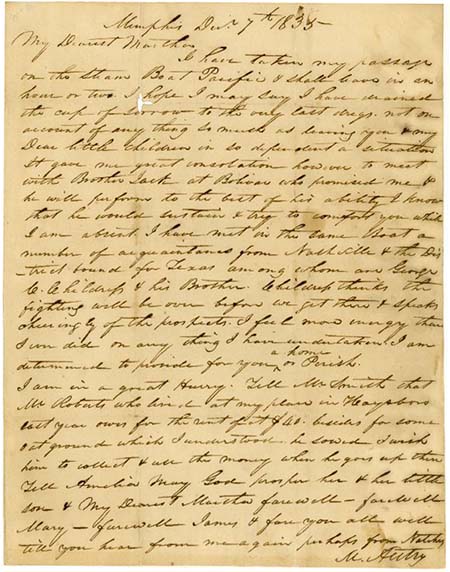 Memphis Decr. 7th 1835
My Dearest Martha
I have taken my passage
on the Steam Boat Pacific & shall leave in an
hour or two. I hope I may say I have drained
the cup of sorrow to the very last dregs. not on
account of any thing so much as leaving you & my
Dear little Children in so dependent a situation
It gave me great consolation however to meet
with Brother Jack at Bolivar who promised me &
he will perform to the best of his ability I know
that he would sustain & try to comfort you while
I am absent. I have met in the same Boat a
number of acquaintances from Nashville & the Dis
trict bound for Texas among whom are George
C. Childress & his Brother. Childress thinks the
fighting will be over before we get there & speaks
cheeringly of the prospects. I feel more energy than
I ever did on any thing I have undertaken. I am
determined to provide for you a home or Perish.
I am in a great Hurry. Tell Mr Smith that
Mr Roberts who lived at my place in Haysboro
last year owes for the rent of it $40. besides for some
oat ground which I understood he sowed I wish
him to collect & use the money when he goes up then
Tell Amelia May God prosper her & her little
son & My Dearest Martha farewell – farewell
Mary – farewell James & fare you all well
till you hear from me again perhaps from Natches
M. Autry